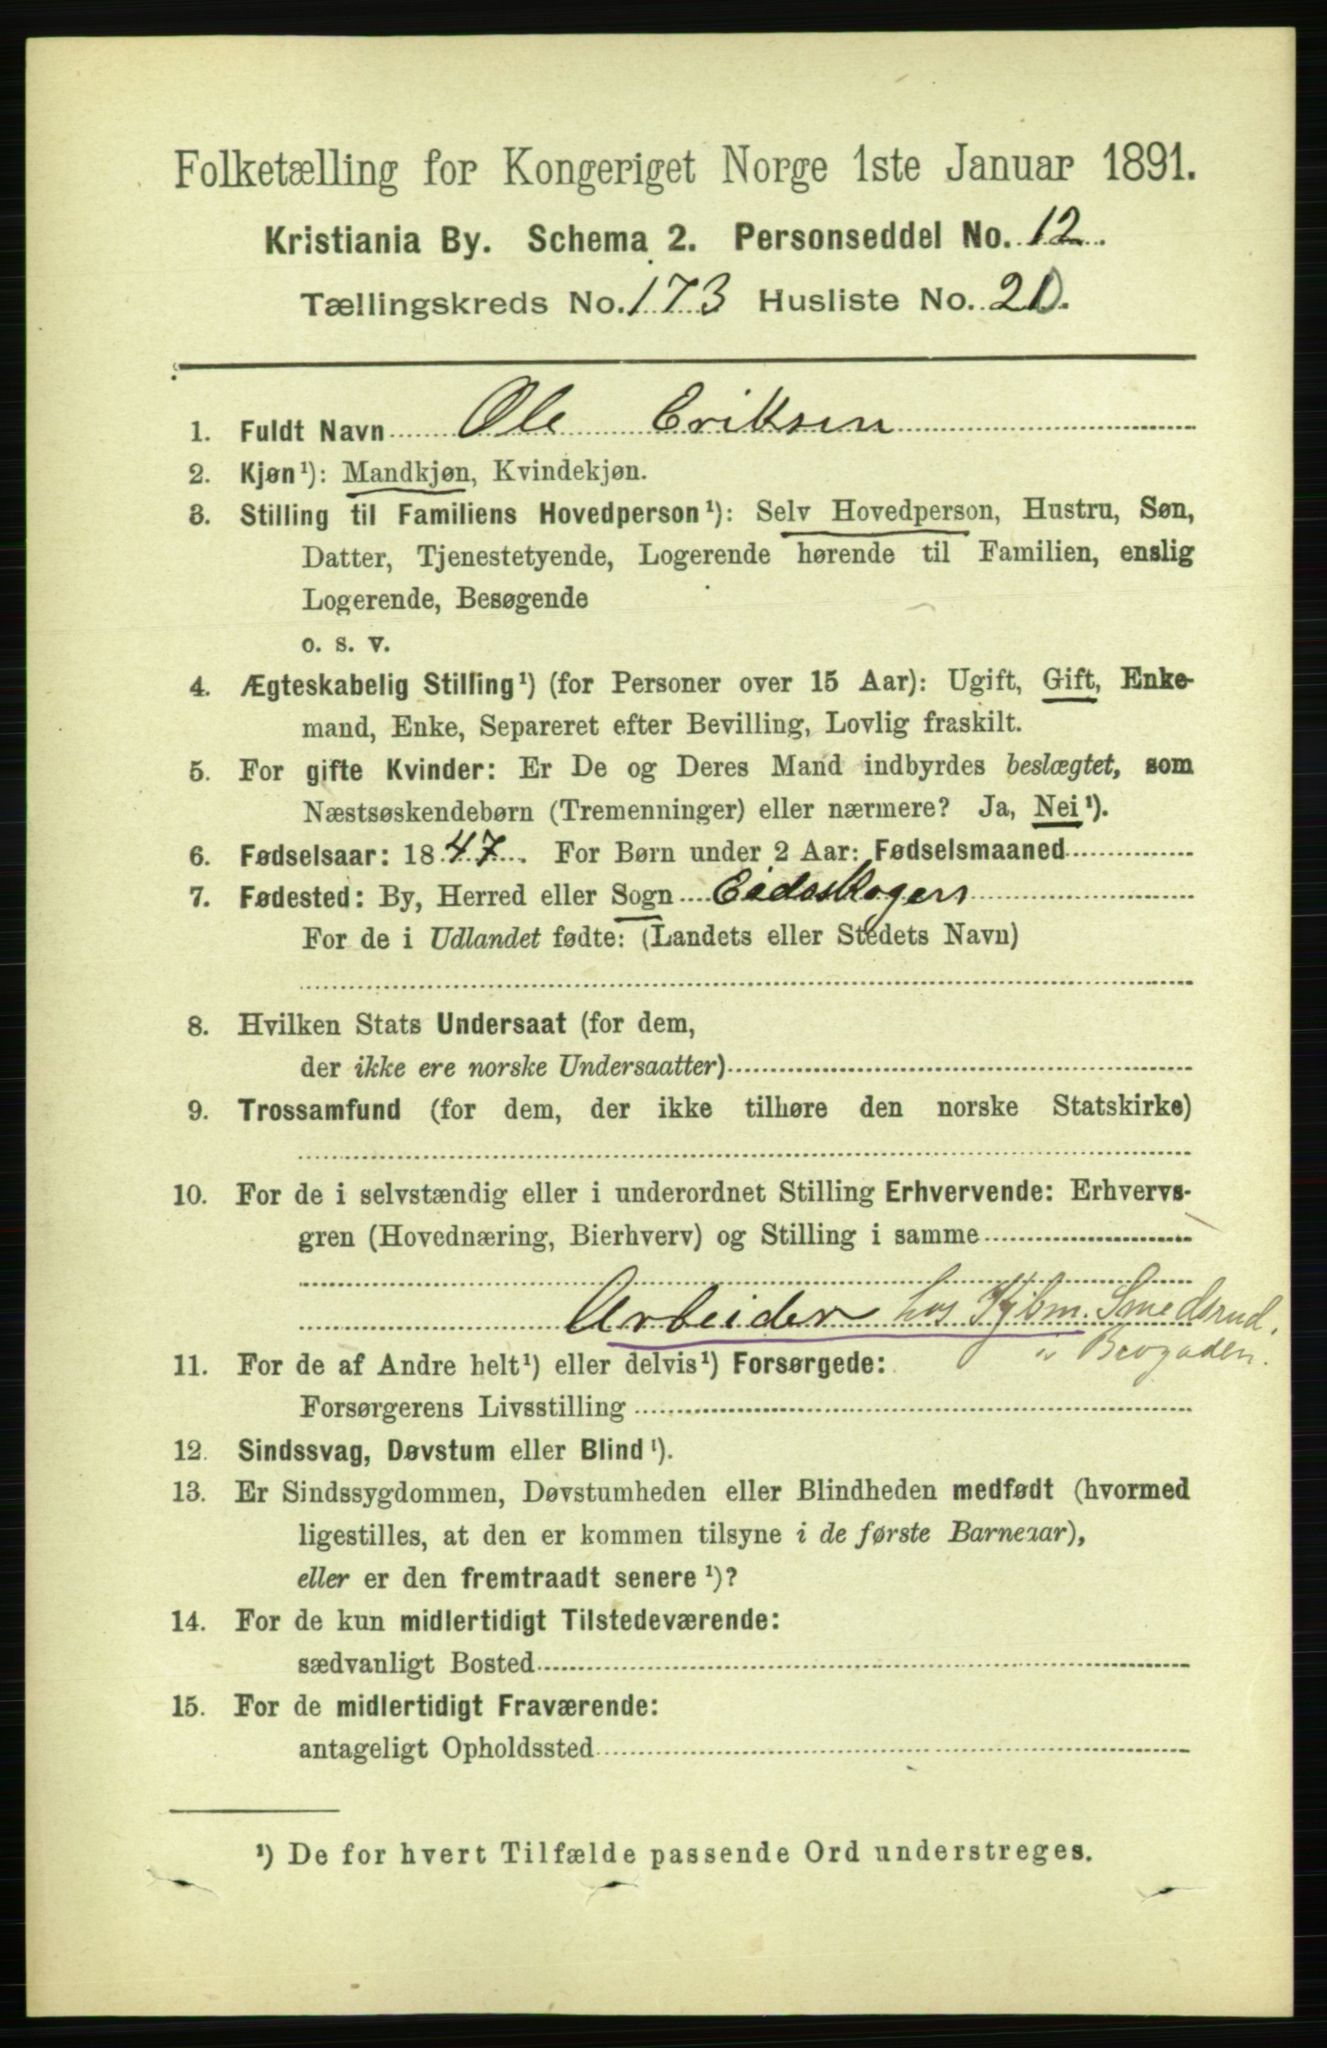 Folketælling for Kongeriget Norge 1ste Januar 1891.
Kristiania By. Schema 2. Personseddel No. 12.
Tællingskreds No. 173 Husliste No. 20.
1. Fuldt Navn Ole Eriksen
2. Kjøn¹): Mandkjøn, Kvindekjøn.
3. Stilling til Familiens Hovedperson¹): Selv Hovedperson, Hustru, Søn,
Datter, Tjenestetyende, Logerende hørende til Familien, enslig
Logerende, Besøgende
o. s. v.
4. Ægteskabelig Stilling¹) (for Personer over 15 Aar): Ugift, Gift, Enke-
mand, Enke, Separeret efter Bevilling, Lovlig fraskilt.
5. For gifte Kvinder: Er De og Deres Mand indbyrdes beslægtet, som
Næstsøskendebørn (Tremenninger) eller nærmere? Ja, Nei¹).
6. Fødselsaar: 1847. For Børn under 2 Aar: Fødselsmaaned
7. Fødested: By, Herred eller Sogn Eidsskogen
For de i Udlandet fødte: (Landets eller Stedets Navn)
8. Hvilken Stats Undersaat (for dem,
der ikke ere norske Undersaatter)
9. Trossamfund (for dem, der ikke tilhøre den norske Statskirke)
10. For de i selvstændig eller i underordnet Stilling Erhvervende: Erhvervs-
gren (Hovednæring, Bierhverv) og Stilling i samme
Arbeider hos Kjbm. Smedsrud.
11. For de af Andre helt¹) eller delvis¹) Forsørgede:
Forsørgerens Livsstilling
12. Sindssvag, Døvstum eller Blind¹).
13. Er Sindssygdommen, Døvstumheden eller Blindheden medfødt (hvormed
ligestilles, at den er kommen tilsyne i de første Barneaar),
eller er den fremtraadt senere¹)?
14. For de kun midlertidigt Tilstedeværende:
sædvanligt Bosted
15. For de midlertidigt Fraværende:
antageligt Opholdssted
¹) De for hvert Tilfælde passende Ord understreges.